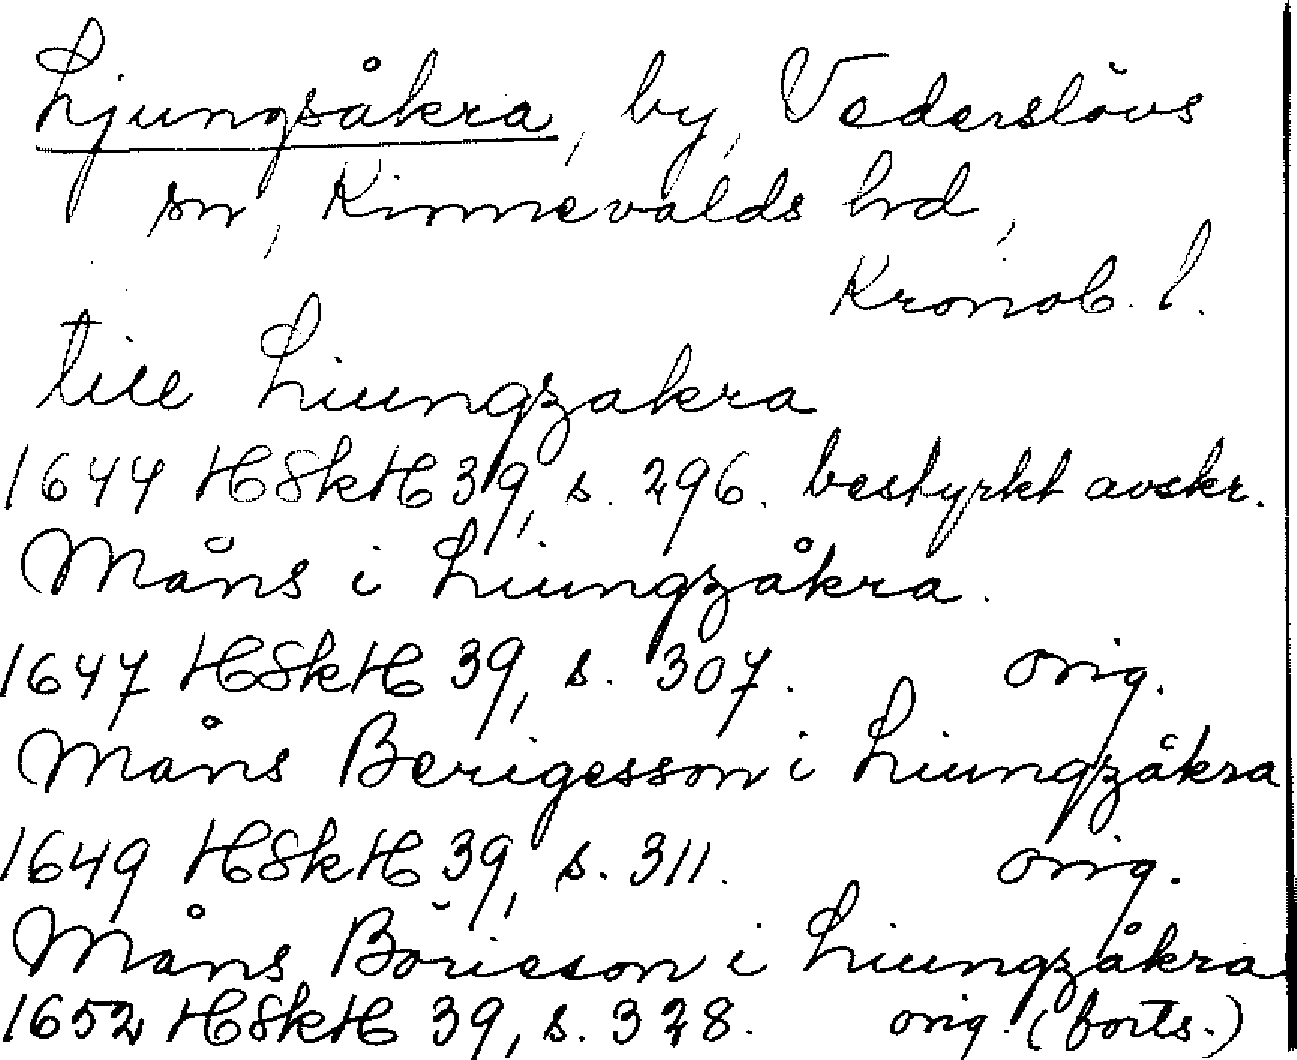 Ljungsåkra, by, Vederslövs
sn, Kinnevalds hd,
Kronob. l.
till Liungzakra
1644 HSkH 39, s. 296. bestyrkt avskr.
Måns i Liungzåkra.
1647 HSkH 39, s. 307. orig.
Måns Berigesson i Liungzåkra
1649 HSkH 39, s. 311. orig.
Måns Böricson i Liungzåkra
1652 HSkH 39, s. 328. orig. (forts.)